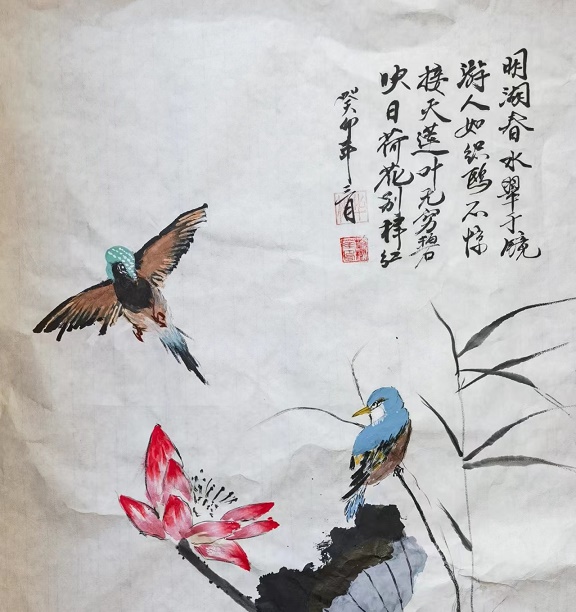 明湖春水翠于
游人如织鸥不惊
接天莲叶无穷碧
映日荷花别样红
癸卯年三月